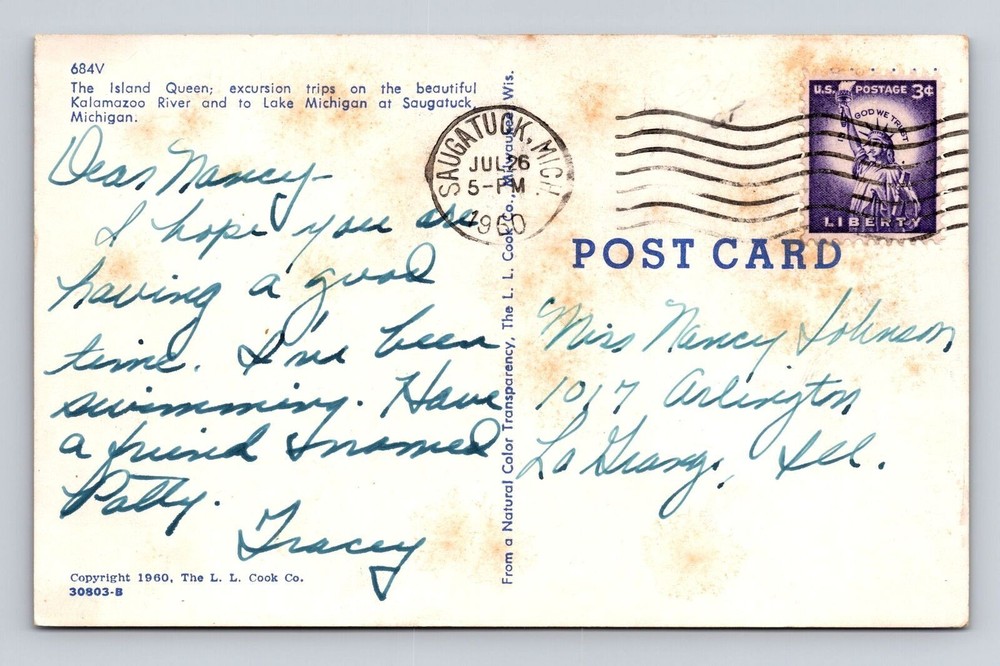 684V
The Island Queen; excursion trips on the beautiful
Kalamazoo River and to Lake Michigan at Saugatuck,
Michigan.
Dear Nancy-
I hope you are
having a good
time. I've been
swimming. Have
a friend named
Patty.
Tracey
Copyright 1960, The L. L. Cook Co.
30803-B
From a Natural Color Transparency, The L. L. Cook Co., Milwaukee Wis.
SAUGATUCK, MICH.
JUL 26
5-PM
1960
U.S. POSTAGE 3¢
IN GOD WE TRUST
LIBERTY
POST CARD
Miss Nancy Johnson
1017 Arlington
La Grange, Ill.